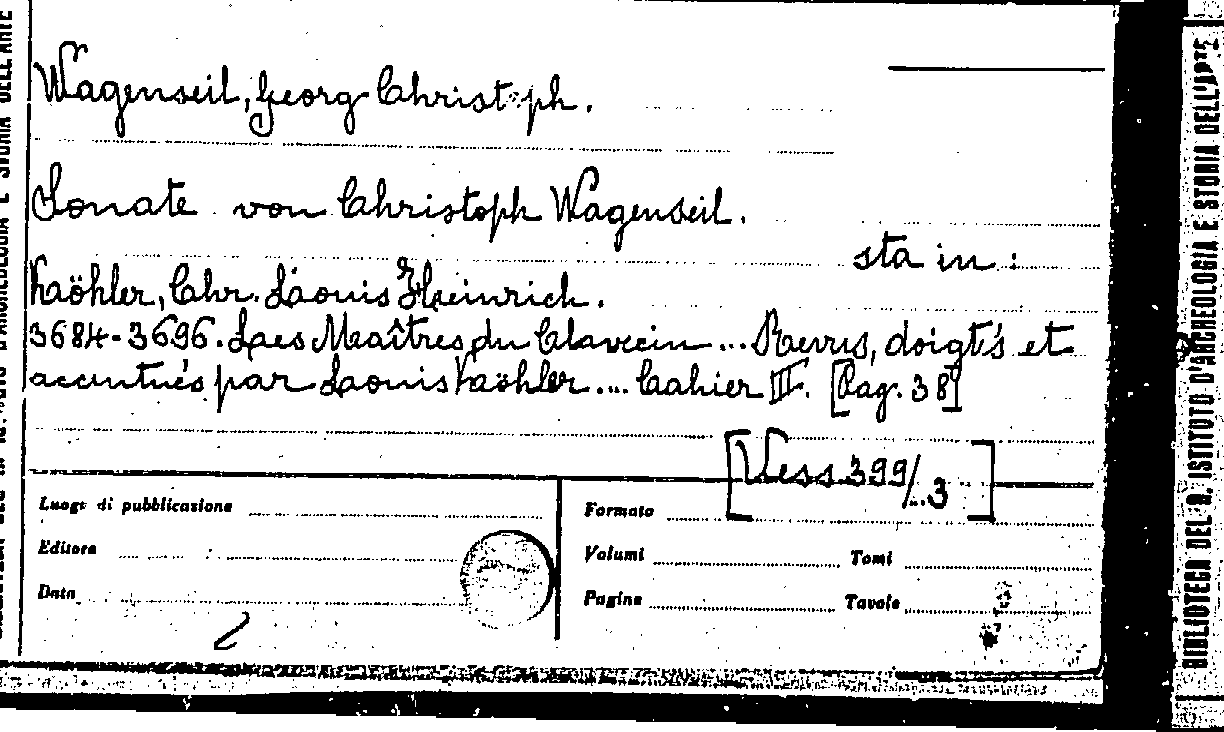 Wagenseil, Georg Christoph.
Sonate von Christoph Wagenseil.
sta in:
Kaöhler, Chr. Laouis Heinrich.
3684-3696. Laes Maîtres du Clavecin ... Revus, doigtés et
accentués par Laouis Kaöhler .... Cahier III. [Pag. 38]
[Vess. 399/.3]
Luogo di pubblicazione
Editore
Data
Formato
Volumi Tomi
Pagine Tavole
BIBLIOTECA DEL R. ISTITUTO D'ARCHEOLOGIA E STORIA DELL'ARTE